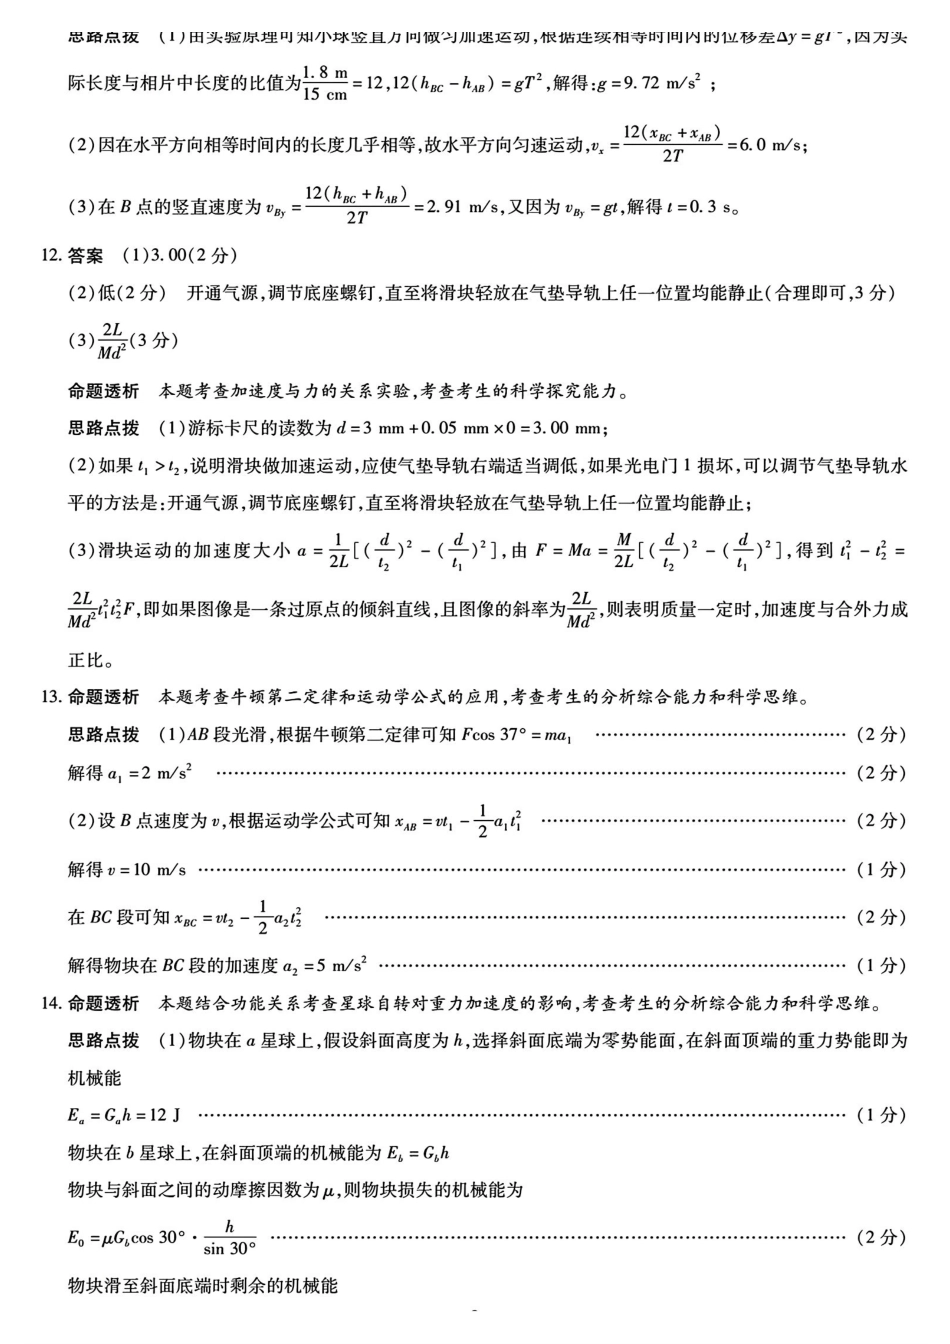 思路点拨 (1)由实验原理可知小球竖直方向做匀加速运动,根据连续相等时间内的位移差Δy=gT²,因为实
际长度与相片中长度的比值为1.8 m/15 cm=12,12(h_BC-h_AB)=gT²,解得:g=9.72 m/s²;
(2)因在水平方向相等时间内的长度几乎相等,故水平方向匀速运动,v_x=12(x_BC+x_AB)/2T=6.0 m/s;
(3)在B点的竖直速度为v_By=12(h_BC+h_AB)/2T=2.91 m/s,又因为v_By=gt,解得t=0.3 s。
12. 答案 (1)3.00(2分)
(2)低(2分) 开通气源,调节底座螺钉,直至将滑块轻放在气垫导轨上任一位置均能静止(合理即可,3分)
(3)2L/Md²(3分)
命题透析 本题考查加速度与力的关系实验,考查考生的科学探究能力。
思路点拨 (1)游标卡尺的读数为d=3 mm+0.05 mm×0=3.00 mm;
(2)如果t₁>t₂,说明滑块做加速运动,应使气垫导轨右端适当调低,如果光电门1损坏,可以调节气垫导轨水
平的方法是:开通气源,调节底座螺钉,直至将滑块轻放在气垫导轨上任一位置均能静止;
(3)滑块运动的加速度大小a=1/2L[(d/t₂)²-(d/t₁)²],由F=Ma=M/2L[(d/t₂)²-(d/t₁)²],得到t₁²-t₂²=
2L/Md²t₁²t₂²F,即如果图像是一条过原点的倾斜直线,且图像的斜率为2L/Md²,则表明质量一定时,加速度与合外力成
正比。
13. 命题透析 本题考查牛顿第二定律和运动学公式的应用,考查考生的分析综合能力和科学思维。
思路点拨 (1)AB段光滑,根据牛顿第二定律可知Fcos 37°=ma₁ ……(2分)
解得a₁=2 m/s² ……(2分)
(2)设B点速度为v,根据运动学公式可知x_AB=vt₁-1/2a₁t₁² ……(2分)
解得v=10 m/s ……(1分)
在BC段可知x_BC=vt₂-1/2a₂t₂² ……(2分)
解得物块在BC段的加速度a₂=5 m/s² ……(1分)
14. 命题透析 本题结合功能关系考查星球自转对重力加速度的影响,考查考生的分析综合能力和科学思维。
思路点拨 (1)物块在a星球上,假设斜面高度为h,选择斜面底端为零势能面,在斜面顶端的重力势能即为
机械能
E_a=G_ah=12 J ……(1分)
物块在b星球上,在斜面顶端的机械能为E_b=G_bh
物块与斜面之间的动摩擦因数为μ,则物块损失的机械能为
E₀=μG_bcos 30°·h/sin 30° ……(2分)
物块滑至斜面底端时剩余的机械能